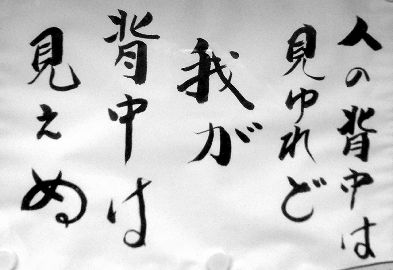 人の背中は
見ゆれど
我が
背中は
見えぬ